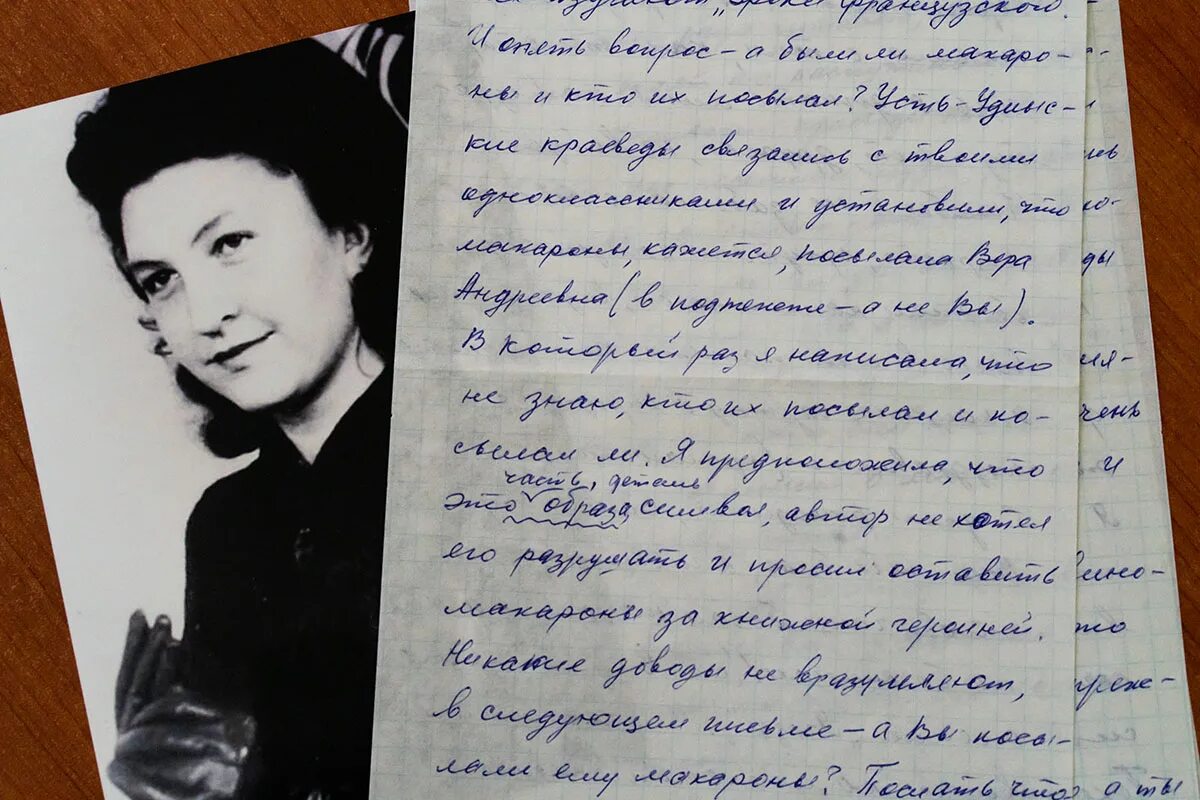 изучают „Уроки французского".
И опять вопрос – а были ли макаро-
ны и кто их посылал? Усть-Удинс-
кие краеведы связались с твоими
одноклассниками и установили, что
макароны, кажется, посылала Вера
Андреевна (в подтексте – а не Вы).
В который раз я написала, что
не знаю, кто их посылал и по-
сылал ли. Я предположила, что
часть, деталь
это образа символ, автор не хотел
его разрушать и просил оставить
макароны за книжной героиней.
Никакие доводы не вразумляют,
в следующем письме – а Вы посы-
лали ему макароны? Послать что
нь
ю-
ды
ия-
чень
и
я
это
преж-
а ты